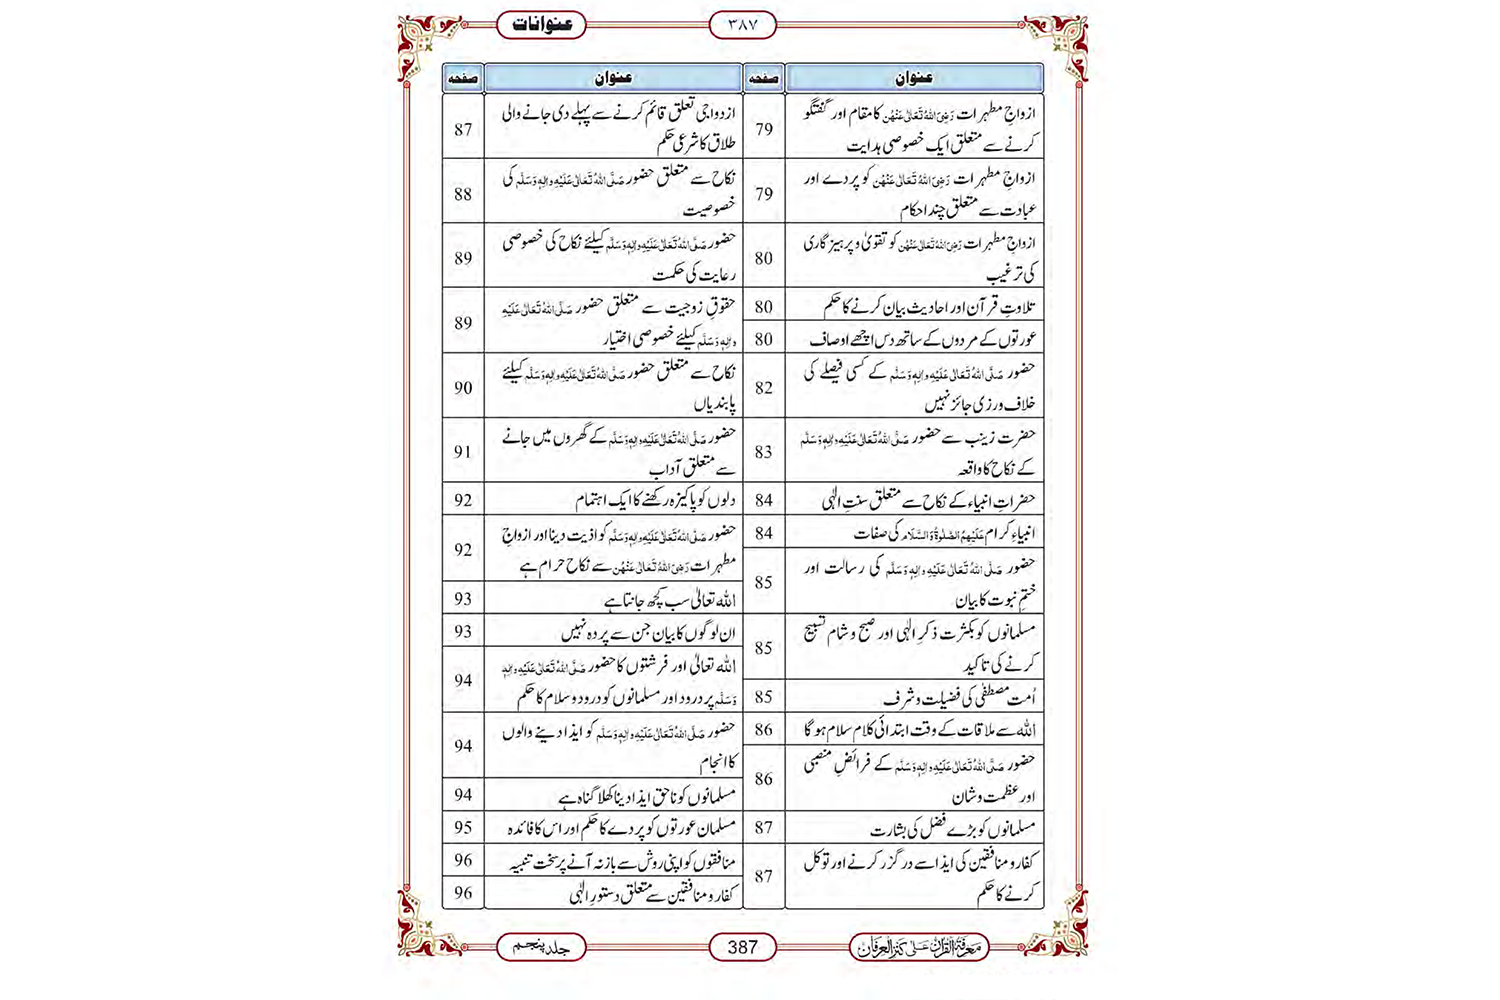 عنوانات
۳۸۷
عنوان
صفحہ
ازواجِ مطہرات رَضِیَ اللہُ تَعَالٰی عَنْهُن کا مقام اور گفتگو
کرنے سے متعلق ایک خصوصی ہدایت
79
ازواجِ مطہرات رَضِیَ اللہُ تَعَالٰی عَنْهُن کو پردے اور
عبادت سے متعلق چند احکام
79
ازواجِ مطہرات رَضِیَ اللہُ تَعَالٰی عَنْهُن کو تقویٰ و پرہیزگاری
کی ترغیب
80
تلاوتِ قرآن اور احادیث بیان کرنے کا حکم
80
عورتوں کے مردوں کے ساتھ دس اچھے اوصاف
80
حضور صَلَّی اللہُ تَعَالٰی عَلَیْهِ واٰلِهٖ وَسَلَّم کے کسی فیصلے کی
خلاف ورزی جائز نہیں
82
حضرت زینب سے حضور صَلَّی اللہُ تَعَالٰی عَلَیْهِ واٰلِهٖ وَسَلَّم
کے نکاح کا واقعہ
83
حضراتِ انبیاء کے نکاح سے متعلق سنتِ الٰہی
84
انبیاءِ کرام عَلَیْهِمُ الصَّلٰوةُ وَالسَّلَام کی صفات
84
حضور صَلَّی اللہُ تَعَالٰی عَلَیْهِ واٰلِهٖ وَسَلَّم کی رسالت اور
ختمِ نبوت کا بیان
85
مسلمانوں کو بکثرت ذکرِ الٰہی اور صبح و شام تسبیح
کرنے کی تاکید
85
اُمت مصطفٰی کی فضیلت و شرف
85
اللہ سے ملاقات کے وقت ابتدائی کلام سلام ہوگا
86
حضور صَلَّی اللہُ تَعَالٰی عَلَیْهِ واٰلِهٖ وَسَلَّم کے فرائضِ منصبی
اور عظمت و شان
86
مسلمانوں کو بڑے فضل کی بشارت
87
کفار و منافقین کی ایذا سے درگزر کرنے اور توکل
کرنے کا حکم
87
عنوان
صفحہ
ازدواجی تعلق قائم کرنے سے پہلے دی جانے والی
طلاق کا شرعی حکم
87
نکاح سے متعلق حضور صَلَّی اللہُ تَعَالٰی عَلَیْهِ واٰلِهٖ وَسَلَّم کی
خصوصیت
88
حضور صَلَّی اللہُ تَعَالٰی عَلَیْهِ واٰلِهٖ وَسَلَّم کیلئے نکاح کی خصوصی
رعایت کی حکمت
89
حقوقِ زوجیت سے متعلق حضور صَلَّی اللہُ تَعَالٰی عَلَیْهِ
واٰلِهٖ وَسَلَّم کیلئے خصوصی اختیار
89
نکاح سے متعلق حضور صَلَّی اللہُ تَعَالٰی عَلَیْهِ واٰلِهٖ وَسَلَّم کیلئے
پابندیاں
90
حضور صَلَّی اللہُ تَعَالٰی عَلَیْهِ واٰلِهٖ وَسَلَّم کے گھروں میں جانے
سے متعلق آداب
91
دلوں کو پاکیزہ رکھنے کا ایک اہتمام
92
حضور صَلَّی اللہُ تَعَالٰی عَلَیْهِ واٰلِهٖ وَسَلَّم کو اذیت دینا اور ازواجِ
مطہرات رَضِیَ اللہُ تَعَالٰی عَنْهُن سے نکاح حرام ہے
92
اللہ تعالیٰ سب کچھ جانتا ہے
93
ان لوگوں کا بیان جن سے پردہ نہیں
93
اللہ تعالیٰ اور فرشتوں کا حضور صَلَّی اللہُ تَعَالٰی عَلَیْهِ واٰلِهٖ
وَسَلَّم پر درود اور مسلمانوں کو درود و سلام کا حکم
94
حضور صَلَّی اللہُ تَعَالٰی عَلَیْهِ واٰلِهٖ وَسَلَّم کو ایذا دینے والوں
کا انجام
94
مسلمانوں کو ناحق ایذا دینا کھلا گناہ ہے
94
مسلمان عورتوں کو پردے کا حکم اور اس کا فائدہ
95
منافقوں کو اپنی روش سے باز نہ آنے پر سخت تنبیہ
96
کفار و منافقین سے متعلق دستورِ الٰہی
96
معرفۃ القرآن علیٰ کنز العرفان
387
جلد پنجم